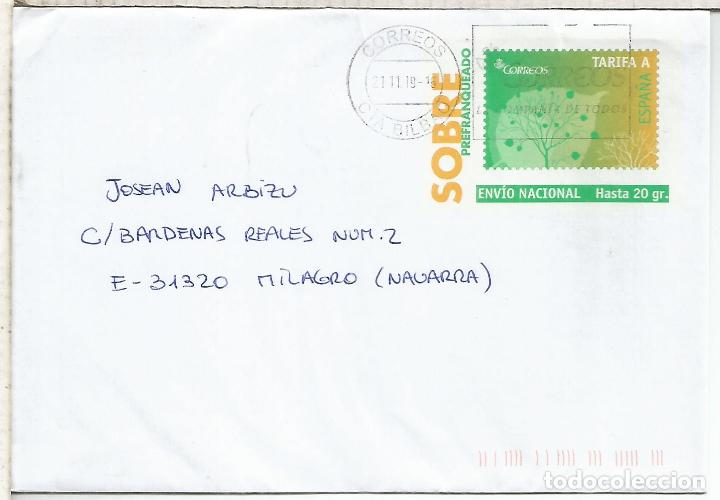 CORREOS
21 11 18-1
C.A BILBAO
SOBRE
PREFRANQUEADO
CORREOS
TARIFA A
ESPAÑA
CORREOS
COMPAÑIA DE TODOS
ENVÍO NACIONAL Hasta 20 gr.
JOSEAN ARBIZU
C/ BARDENAS REALES NUM. 2
E-31320 MILAGRO (NAVARRA)
todocoleccion